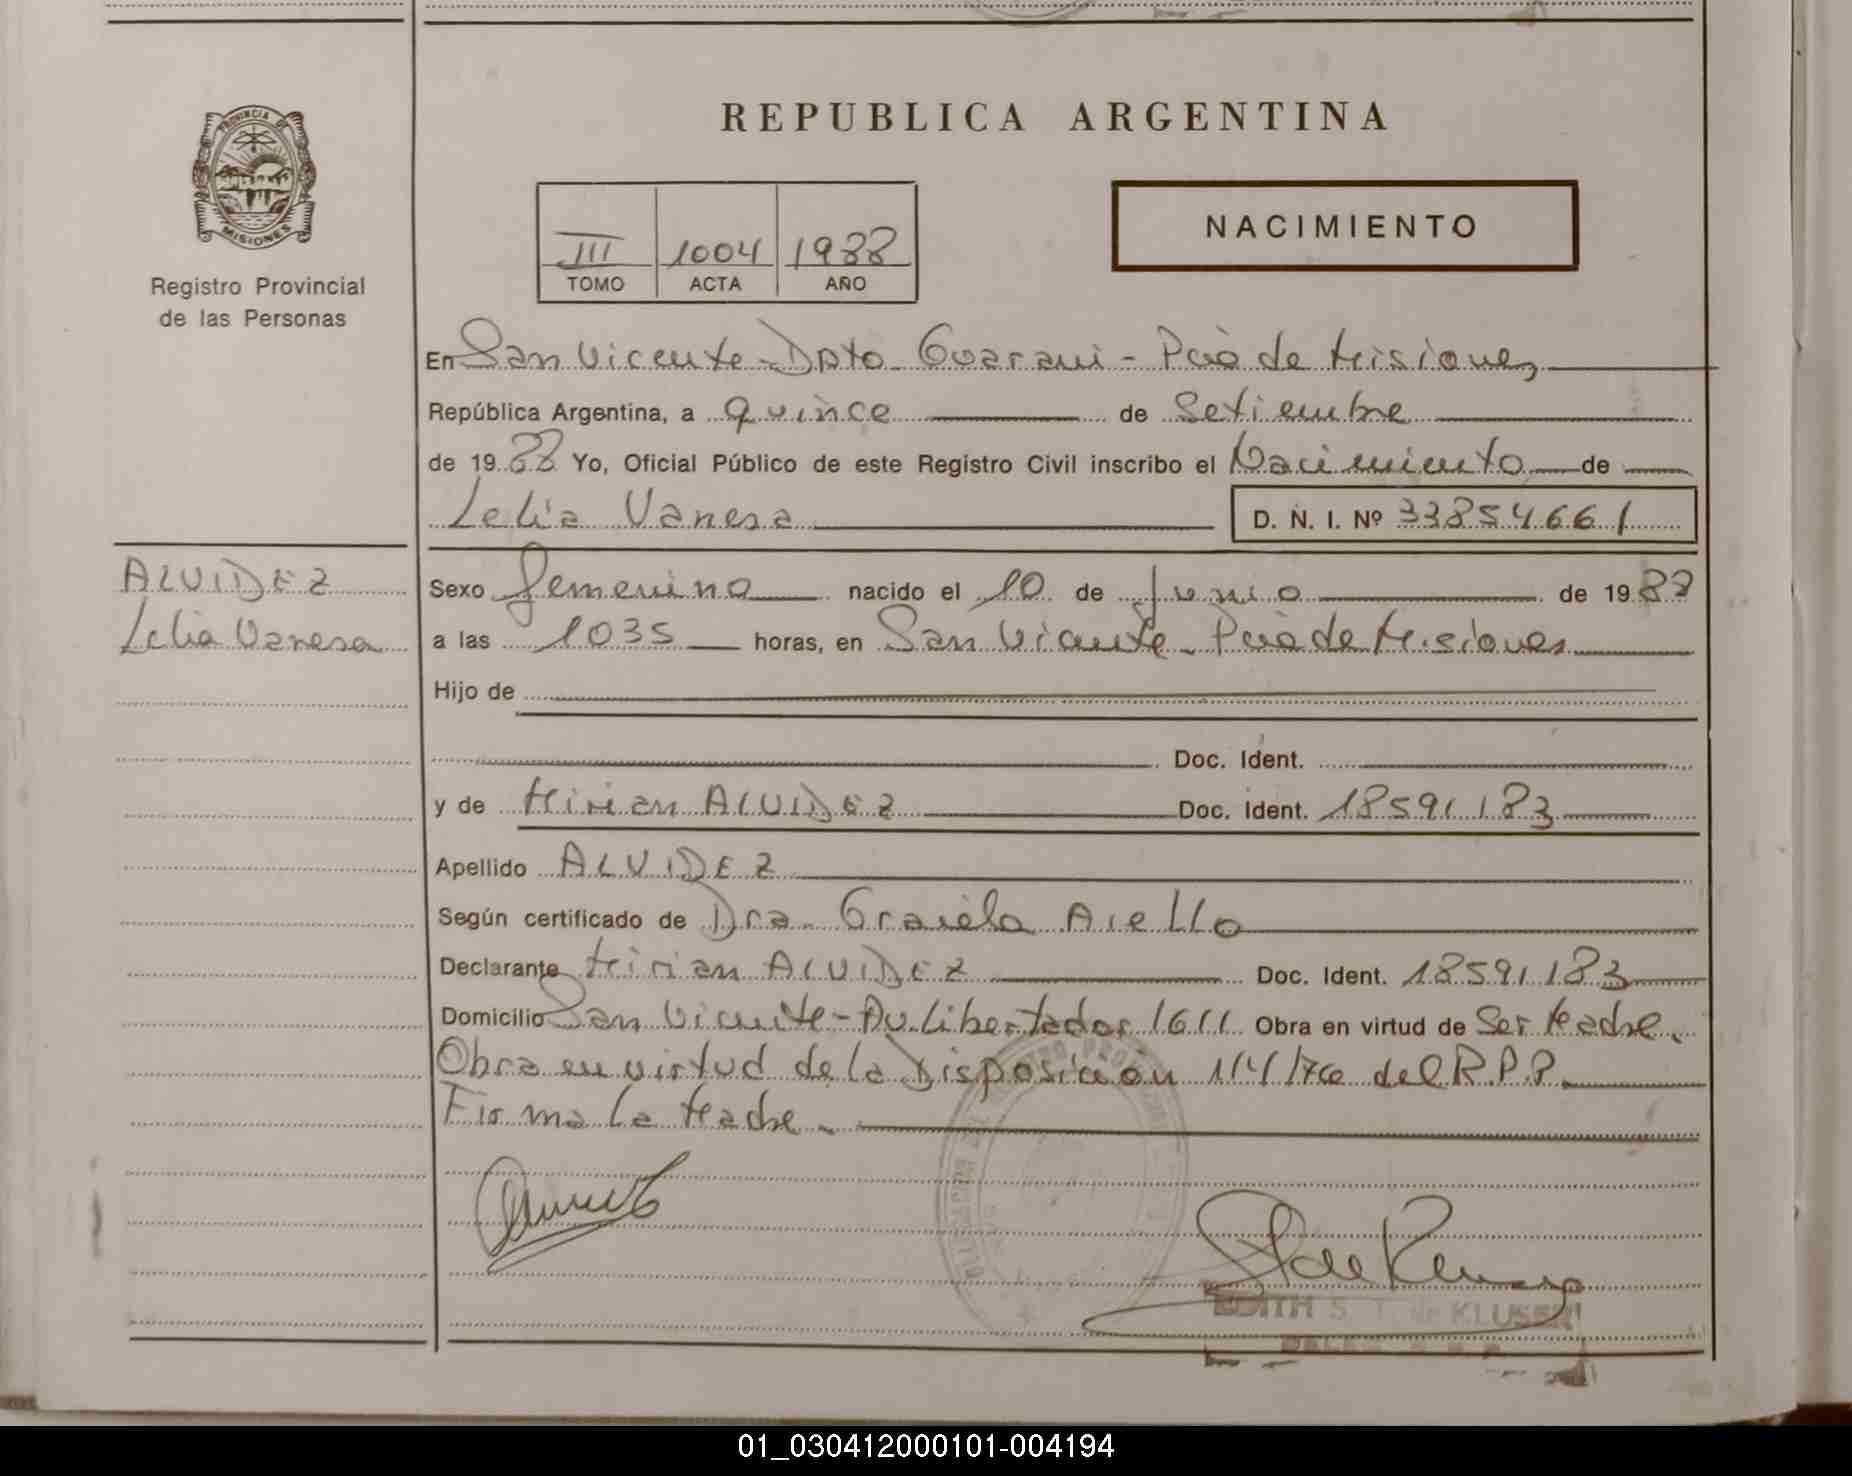 PROVINCIA DE
MISIONES
Registro Provincial
de las Personas
REPUBLICA ARGENTINA
III 1004 1988
TOMO ACTA AÑO
NACIMIENTO
En San Vicente - Dpto Guarani - Pcia de Misiones
República Argentina, a quince de Setiembre
de 1988 Yo, Oficial Público de este Registro Civil inscribo el Nacimiento de
Lelia Vanesa D. N. I. Nº 33854661
ALVIDEZ
Lelia Vanesa
Sexo femenino nacido el 10 de Junio de 1988
a las 1035 horas, en San Vicente - Pcia de Misiones
Hijo de
Doc. Ident.
y de Mirian ALVIDEZ Doc. Ident. 18591183
Apellido ALVIDEZ
Según certificado de Dra. Graciela Aiello
Declarante Mirian ALVIDEZ Doc. Ident. 18591183
Domicilio San Vicente - Av. Libertador 1611 Obra en virtud de Ser Madre.
Obra en virtud de la Disposición 114/76 del R.P.P.
Firma la Madre.
EDITH S. T. de KLUSENI
01_030412000101-004194